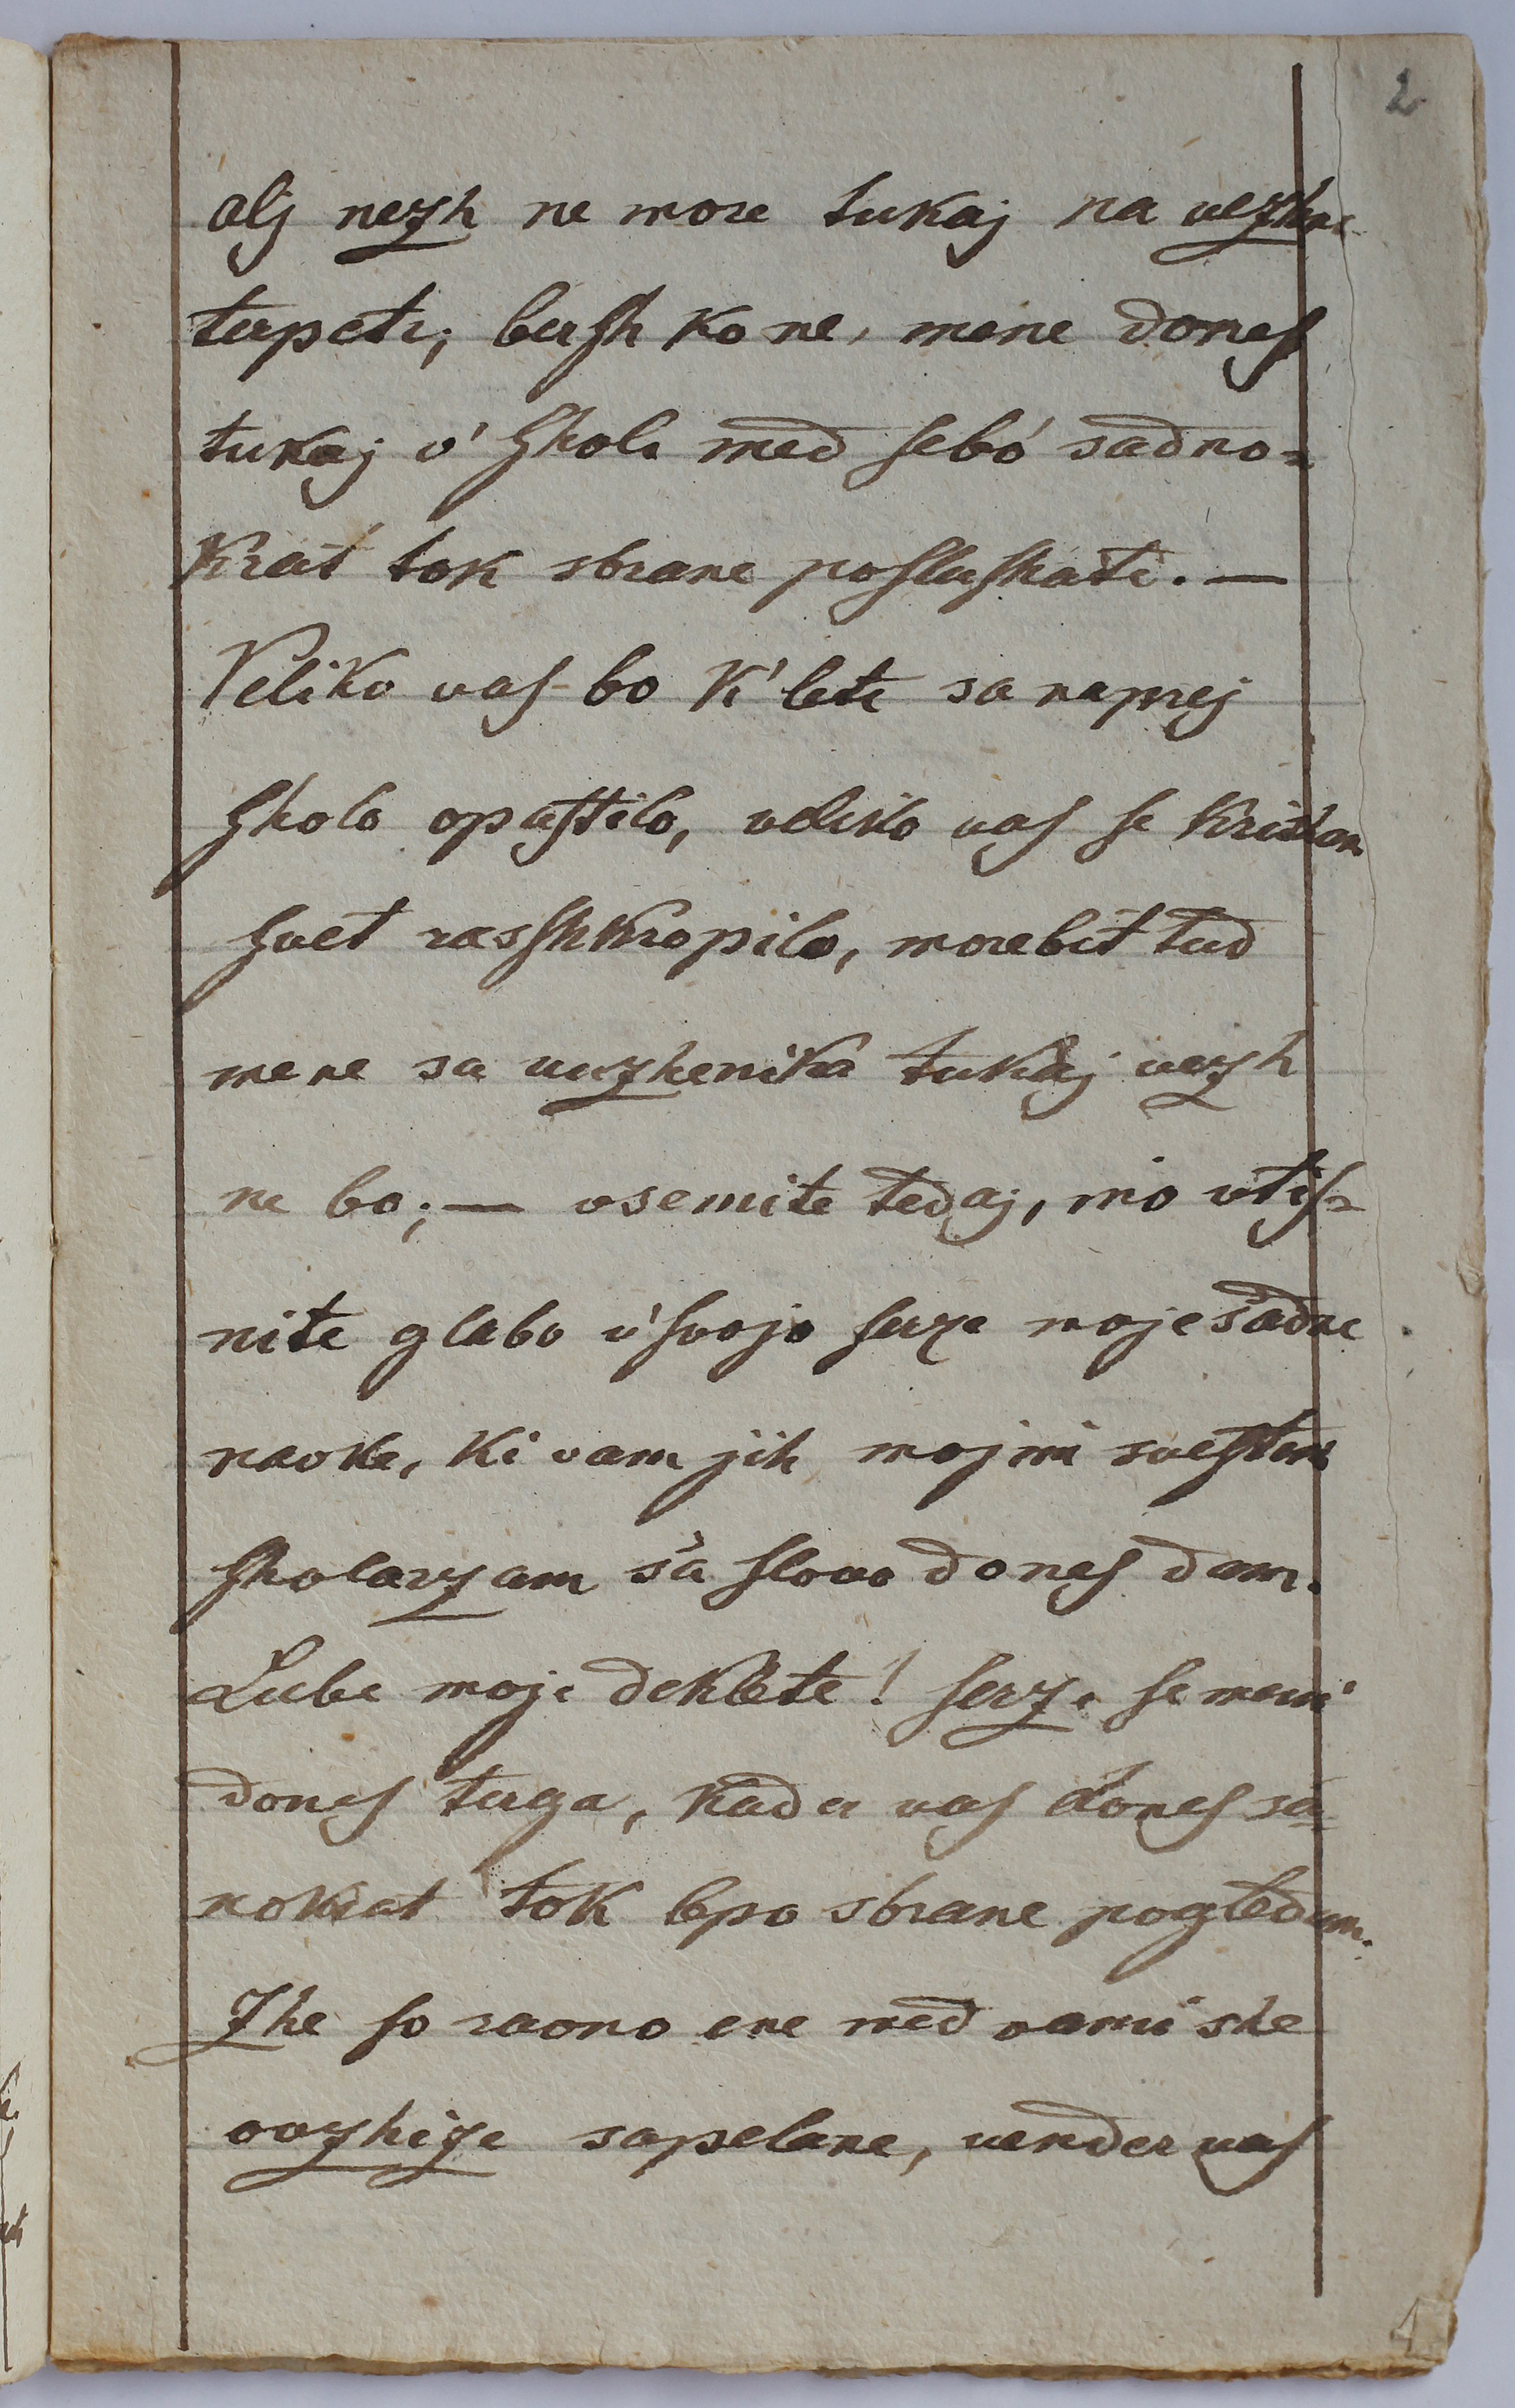 2
alj nezh ne more tukaj na vezhne
terpeti; bersh ko ne, mene doneſ
tukaj v' ſholi med ſebó sadno-
krat tok sbrane poſluſhate. —
Veliko vaſ bo k' leti sa naprej
ſholo opuſtilo, veliko vaſ ſe
ſvet rasſhkropilo, morebit tud
mene sa vuzhenika tukaj vezh
ne bo; — vsemite tedaj, ino vtiſ-
nite glabo v' ſvojo ſerze moje sadne
navke, ki vam jih mojmi sveſtem
ſholarzam sa ſlovo doneſ dam.
Lube moje deklete! ſerze ſe meni
doneſ terga, kader vaſ doneſ sa-
nokrat tok lepo sbrane pogledam.
Zhe ſo ravno ene med vami she
ovzhize sapelane, vender vaſ
1